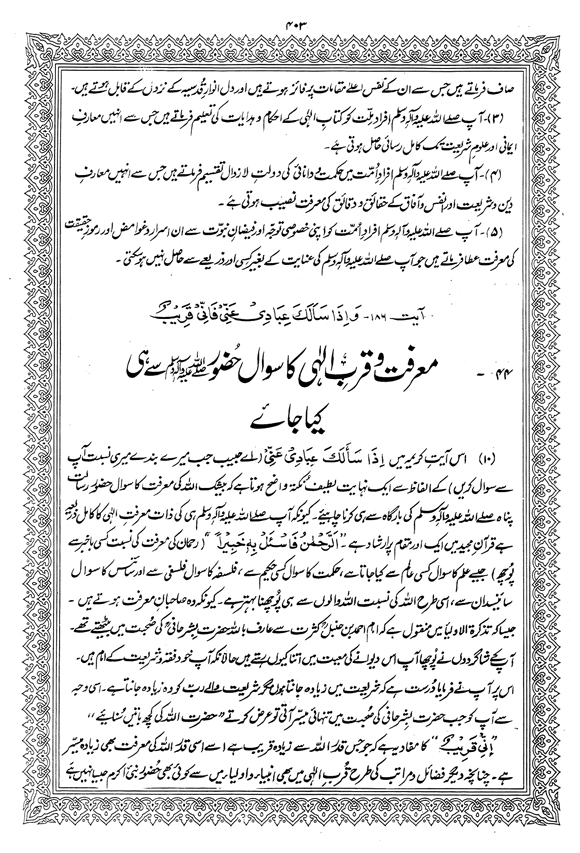 ۴۰۳
صاف فرماتے ہیں جس سے ان کے نفس اعلےٰ مقامات پر فائز ہوتے ہیں اور دل انوارِ قدسیہ کے نزول کے قابل ہوتے ہیں۔
(۳)۔ آپ صلے اللہ علیہ وآلہٖ وسلم افرادِ ملّت کو کتابِ الٰہی کے احکام و ہدایات کی تعلیم فرماتے ہیں جس سے انہیں معارفِ
ایمانی اور علومِ شریعت تک کامل رسائی حاصل ہوتی ہے۔
(۴)۔ آپ صلے اللہ علیہ وآلہٖ وسلم افرادِ اُمّت میں حکمت و دانائی کی دولتِ لازوال تقسیم فرماتے ہیں جس سے انہیں معارفِ
دین و شریعت اور انفس و آفاق کے حقائق و دقائق کی معرفت نصیب ہوتی ہے۔
(۵)۔ آپ صلے اللہ علیہ وآلہٖ وسلم افرادِ اُمّت کو اپنی خصوصی توجّہ اور فیضانِ نبوّت سے ان اسرار و غوامض اور رموزِ حقیقت
کی معرفت عطا فرماتے ہیں جو آپ صلے اللہ علیہ وآلہٖ وسلم کی عنایت کے بغیر کسی اور ذریعے سے حاصل نہیں ہو سکتی۔
آیت ۱۸۶۔ وَاِذَا سَاَلَكَ عِبَادِیْ عَنِّیْ فَاِنِّیْ قَرِیْبٌ
۴۴ ۔ معرفت و قربِ الٰہی کا سوال حُضُور ﷺ سے ہی
کیا جائے
(۱۰) اس آیتِ کریمہ میں اِذَا سَاَلَكَ عِبَادِیْ عَنِّیْ (اے حبیب جب میرے بندے میری نسبت آپ
سے سوال کریں) کے الفاظ سے ایک نہایت لطیف نکتہ واضح ہوتا ہے کہ بیشک اللہ کی معرفت کا سوال حضور رسالت
پناہ صلے اللہ علیہ وآلہٖ وسلم کی بارگاہ سے ہی کرنا چاہیئے۔ کیونکہ آپ صلے اللہ علیہ وآلہٖ وسلم ہی کی ذات معرفتِ الٰہی کا کامل ذریعہ
ہے قرآنِ مجید میں ایک اور مقام پر ارشاد ہے۔ "اَلرَّحْمٰنُ فَاسْئَلْ بِهٖ خَبِیْرًا" (رحمان کی معرفت کی نسبت کسی باخبر سے
پُوچھ) جیسے علم کا سوال کسی عالم سے کیا جاتا ہے، حکمت کا سوال کسی حکیم سے، فلسفہ کا سوال فلسفی سے اور سائنس کا سوال
سائنسدان سے، اسی طرح اللہ کی نسبت اللہ والوں سے ہی پُوچھنا بہتر ہے۔ کیونکہ وہ صاحبانِ معرفت ہوتے ہیں۔
جیسا کہ تذکرۃ الاولیا میں منقول ہے کہ امام احمد بن حنبلؒ کثرت سے عارف باللہ حضرت بشر حافیؒ کی صحبت میں بیٹھتے تھے۔
آپکے شاگردوں نے پُوچھا آپ اس دیوانے کی معیت میں اتنا کیوں رہتے ہیں حالانکہ آپ خود فقہ و شریعت کے امام ہیں۔
اس پر آپ نے فرمایا دُرست ہے کہ شریعت میں زیادہ جانتا ہوں مگر شریعت والے رب کو وہ زیادہ جانتا ہے۔ اسی وجہ
سے آپ کو جب حضرت بشر حافیؒ کی صُحبت میں تنہائی میسّر آتی تو عرض کرتے "حضرت اللہ کی کچھ باتیں سُنائیے"
"اِنِّیْ قَرِیْبٌ" کا مفاد یہ ہے کہ جو جس قدر اللہ سے زیادہ قریب ہے اسے اسی قدر اللہ کی معرفت بھی زیادہ میسّر
ہے۔ چنانچہ دیگر فضائل و مراتب کی طرح قُربِ الٰہی میں بھی انبیاء و اولیاء میں سے کوئی بھی حُضُور نبئ اکرم جیسا نہیں ہے